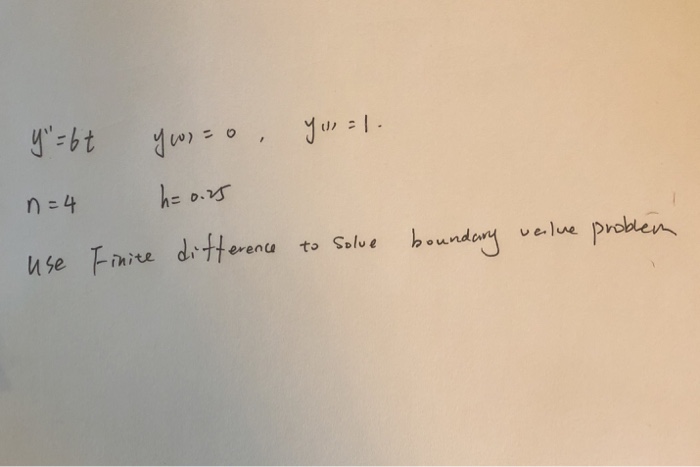 y''=6t y(0) = 0 , y(1) = 1.
n = 4 h = 0.25
use Finite difference to Solve boundary value problem